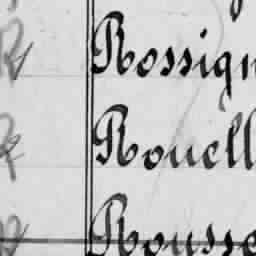 Rossign
Rouell
Rousse